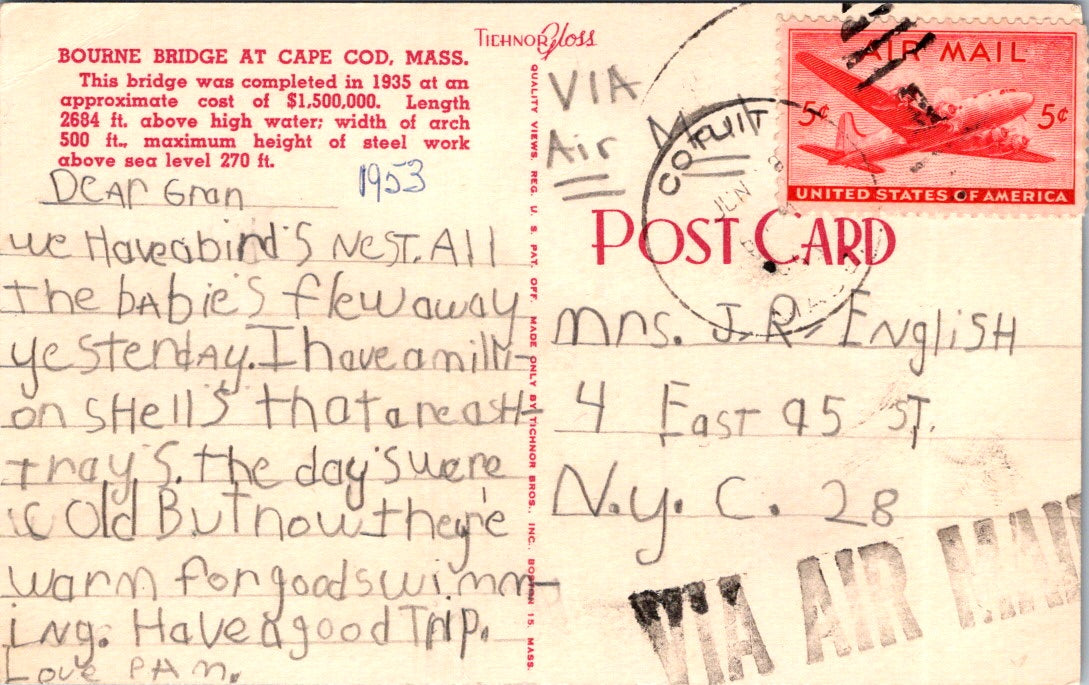 BOURNE BRIDGE AT CAPE COD, MASS.
This bridge was completed in 1935 at an
approximate cost of $1,500,000. Length
2684 ft. above high water; width of arch
500 ft., maximum height of steel work
above sea level 270 ft.
Dear Gran
1953
we Have a bird's Nest. All
The babie's flew away
yesterday. I have a milli-
on SHell's that are asH-
tray's. the day's were
Old But now they're
warm for good swimm-
iNg. Have a good Trip.
Love PAm.
TICHNOR Gloss
QUALITY VIEWS. REG. U. S. PAT. OFF. MADE ONLY BY TICHNOR BROS., INC. BOSTON 15, MASS.
VIA
Air Mail
COTUIT
JUN
MASS
AIR MAIL
5¢ 5¢
UNITED STATES OF AMERICA
POST CARD
mrs. J. R. ENgliSH
4 East 95 ST.
N.y. C. 28
VIA AIR MAIL